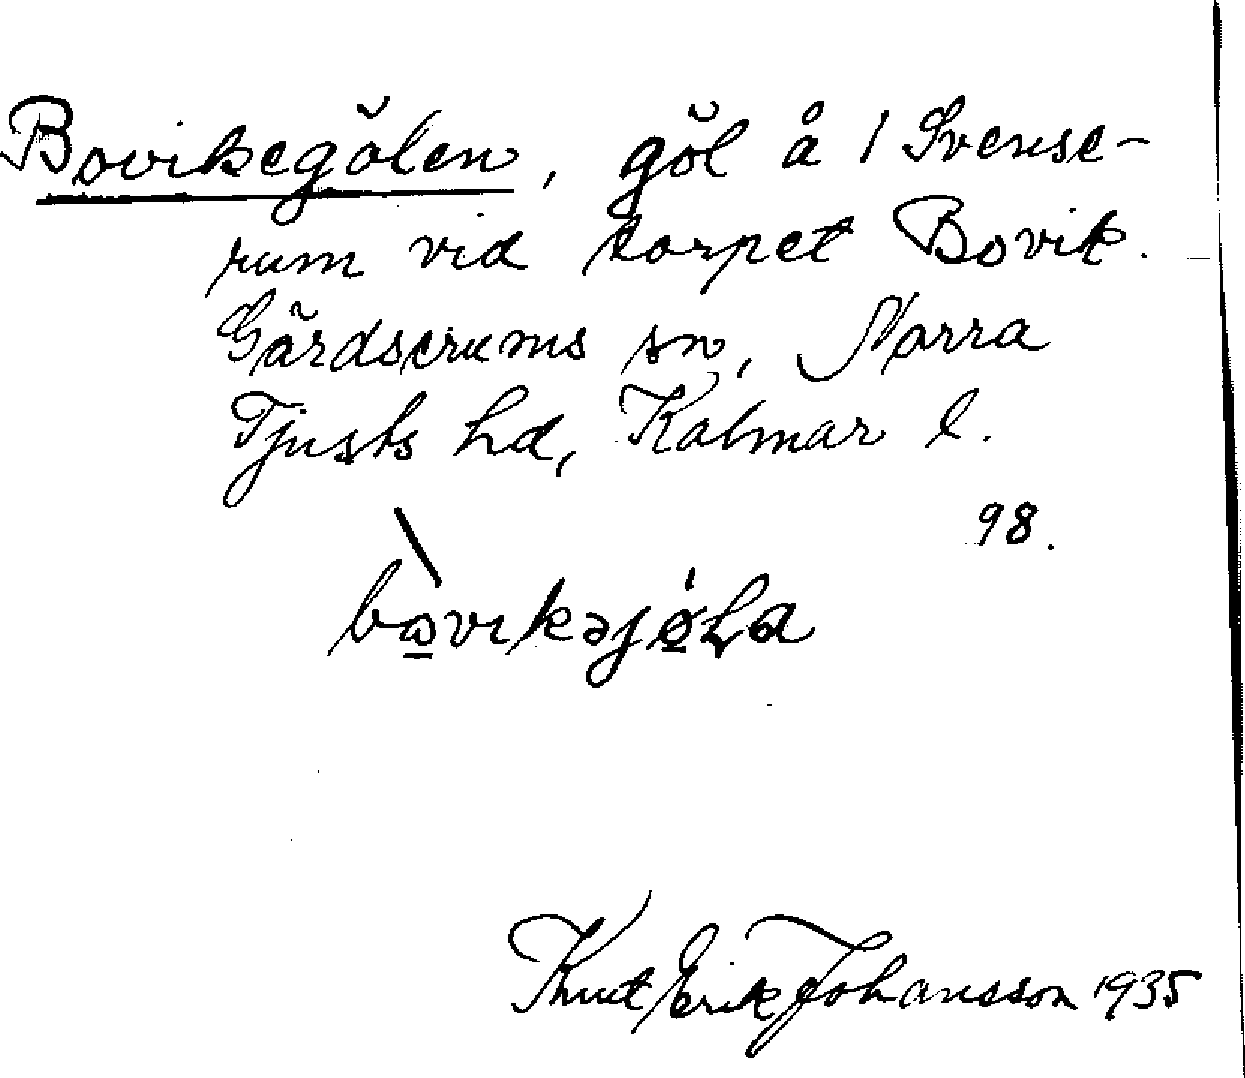 Bovikegölen, göl å 1 Svense-
rum vid torpet Bovik.
Gärdserums sn, Norra
Tjusts hd, Kalmar l.
98.
bo̲vikəjǿ̲La
Knut Erik Johansson 1935